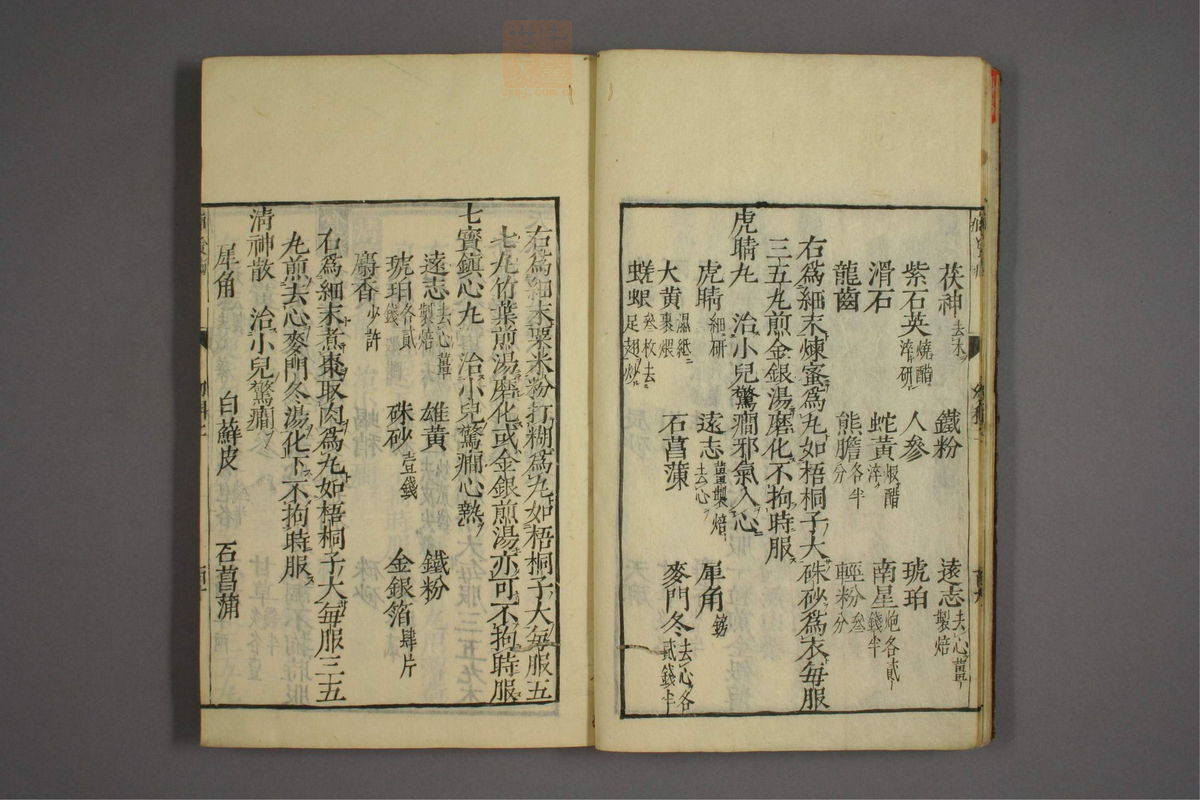 茯神去木 鐵粉 遠志去心薑製焙
紫石英燒醋淬研 人參 琥珀
滑石 蛇黃煅醋淬 南星炮各貳錢半
龍齒 熊膽各半分 輕粉叁分
右爲細末煉蜜爲丸如梧桐子大硃砂爲衣每服
三五丸煎金銀湯磨化不拘時服
虎睛丸 治小兒驚癎邪氣入心
虎睛細研 遠志薑製焙去心 犀角鎊
大黃濕紙裹煨 石菖蒲 麥門冬去心各貳錢半
蜣蜋叁枚去足翅炒
右爲細末粟米粉打糊爲丸如梧桐子大每服五
七丸竹葉煎湯磨化或金銀煎湯亦可不拘時服
七寶鎮心丸 治小兒驚癎心熱
遠志去心薑製焙 雄黃 鐵粉
琥珀各貳錢 硃砂壹錢 金銀箔肆片
麝香少許
右爲細末煮棗取肉爲丸如梧桐子大每服三五
丸煎去心麥門冬湯化下不拘時服
清神散 治小兒驚癎
犀角 白蘚皮 石菖蒲